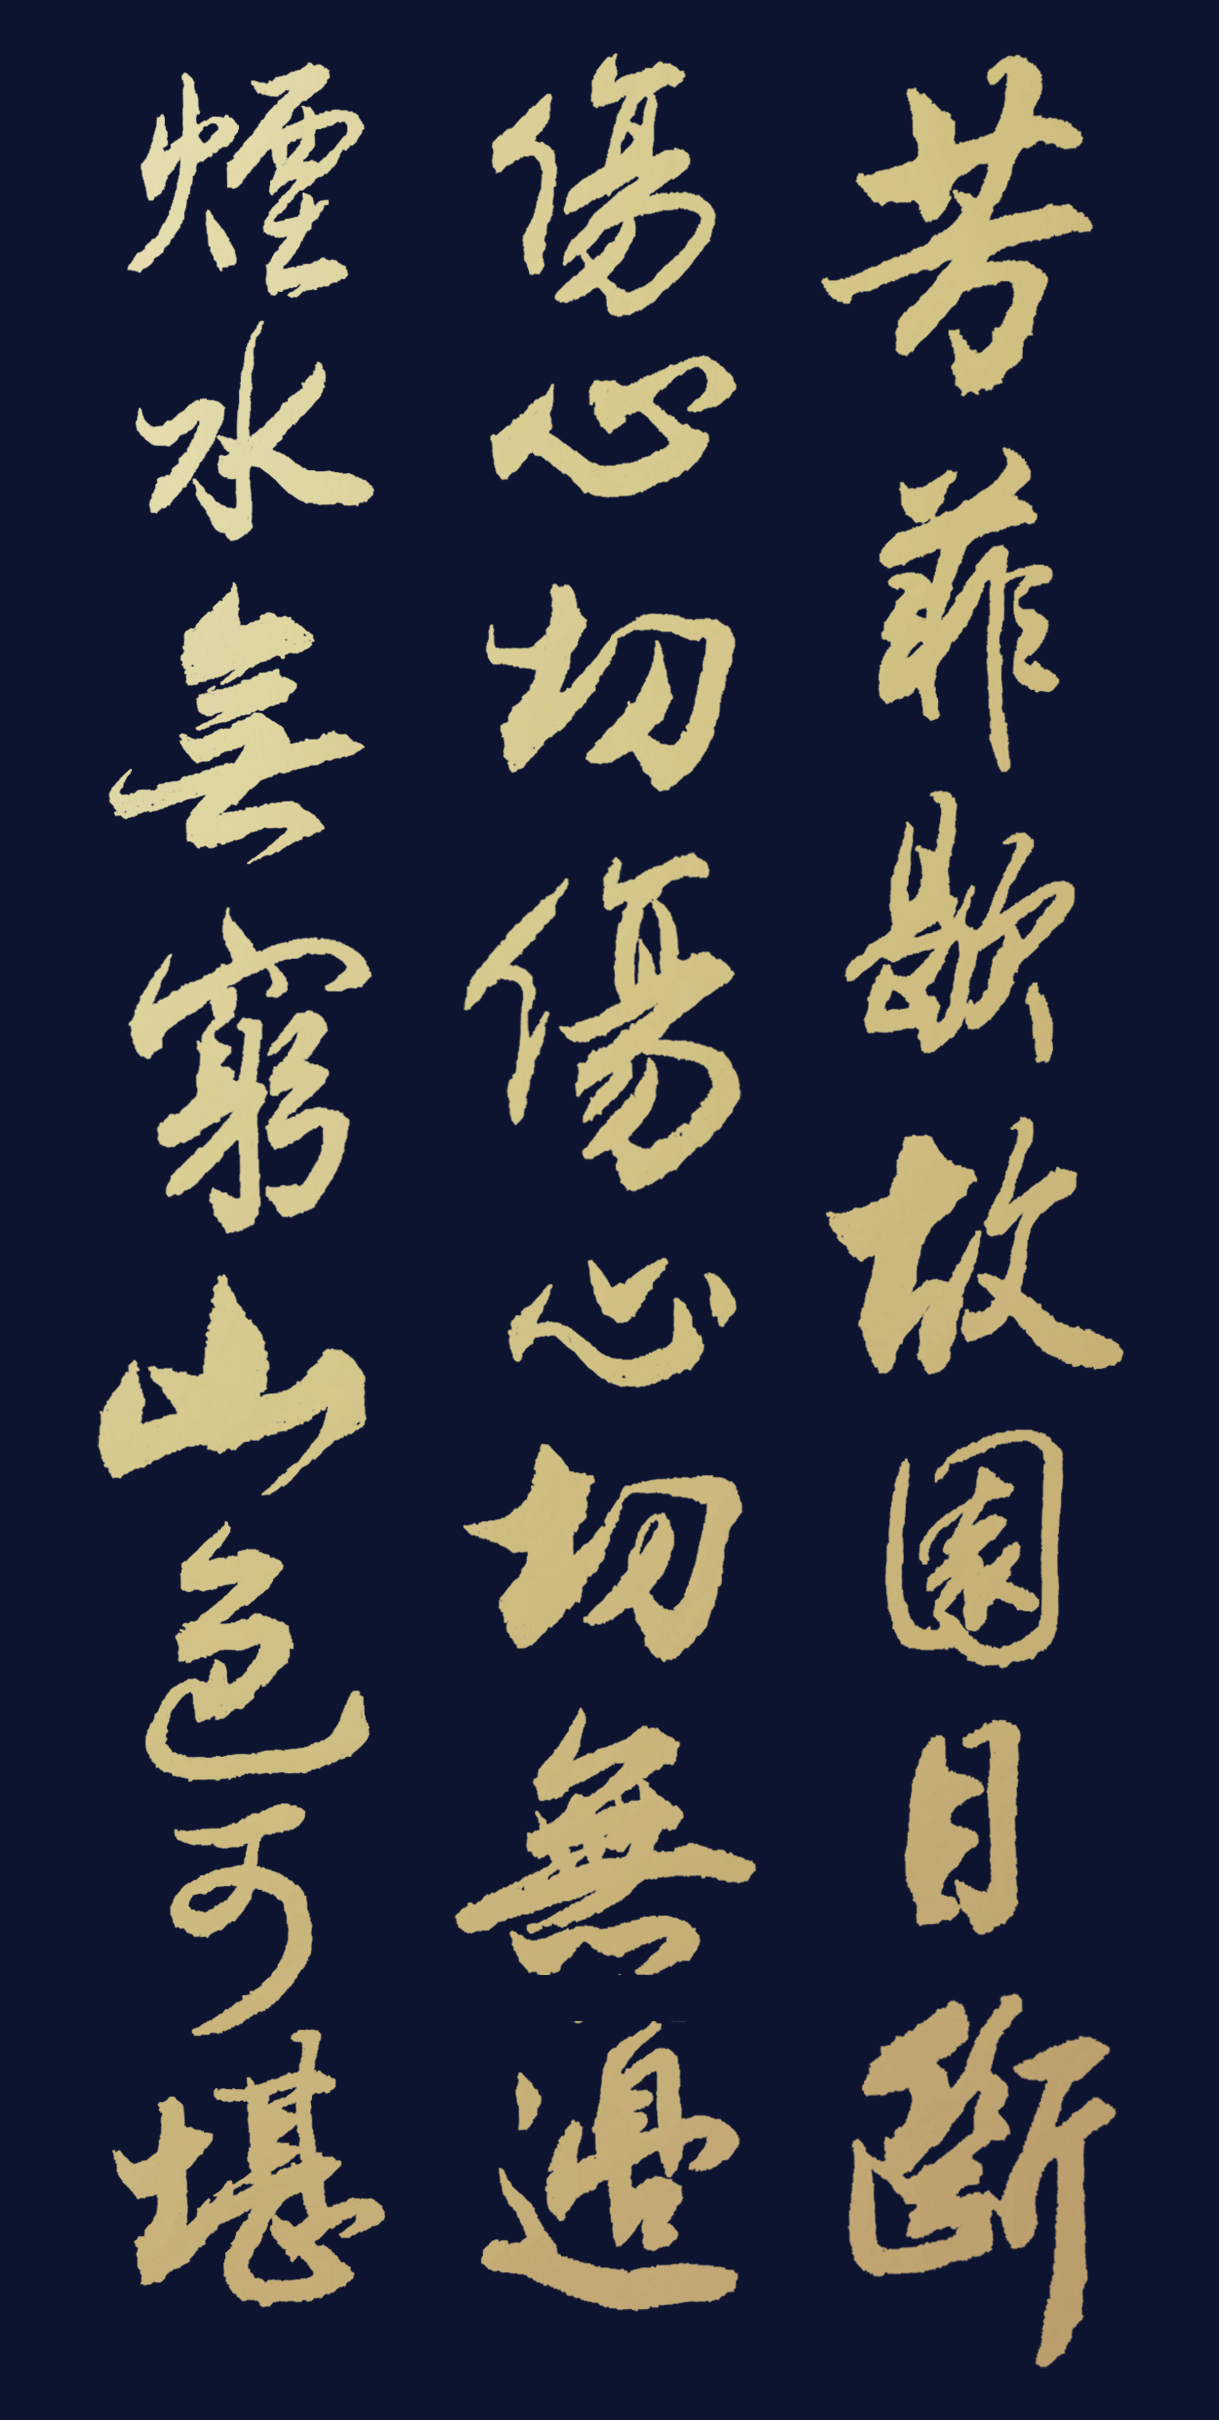 芳菲歇故園目斷
傷心切傷心切無邊
煙水無窮山色可堪